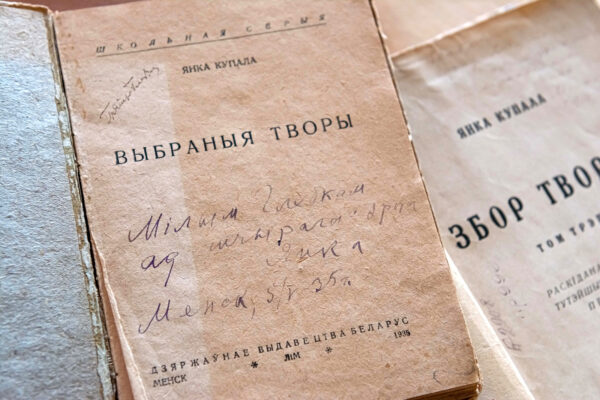 ШКОЛЬНАЯ СЕРЫЯ
ЯНКА КУПАЛА
ВЫБРАНЫЯ ТВОРЫ
Мілым Глебкам
ад шчырага друга
Янка
Менск, 5/V 35 г.
ДЗЯРЖАЎНАЕ ВЫДАВЕЦТВА БЕЛАРУС
МЕНСК * ЛІМ * 1935
ЯНКА КУПАЛА
ЗБОР ТВОР
ТОМ ТРЭ
РАСКІДАНА
ТУТЭЙШЫ
П